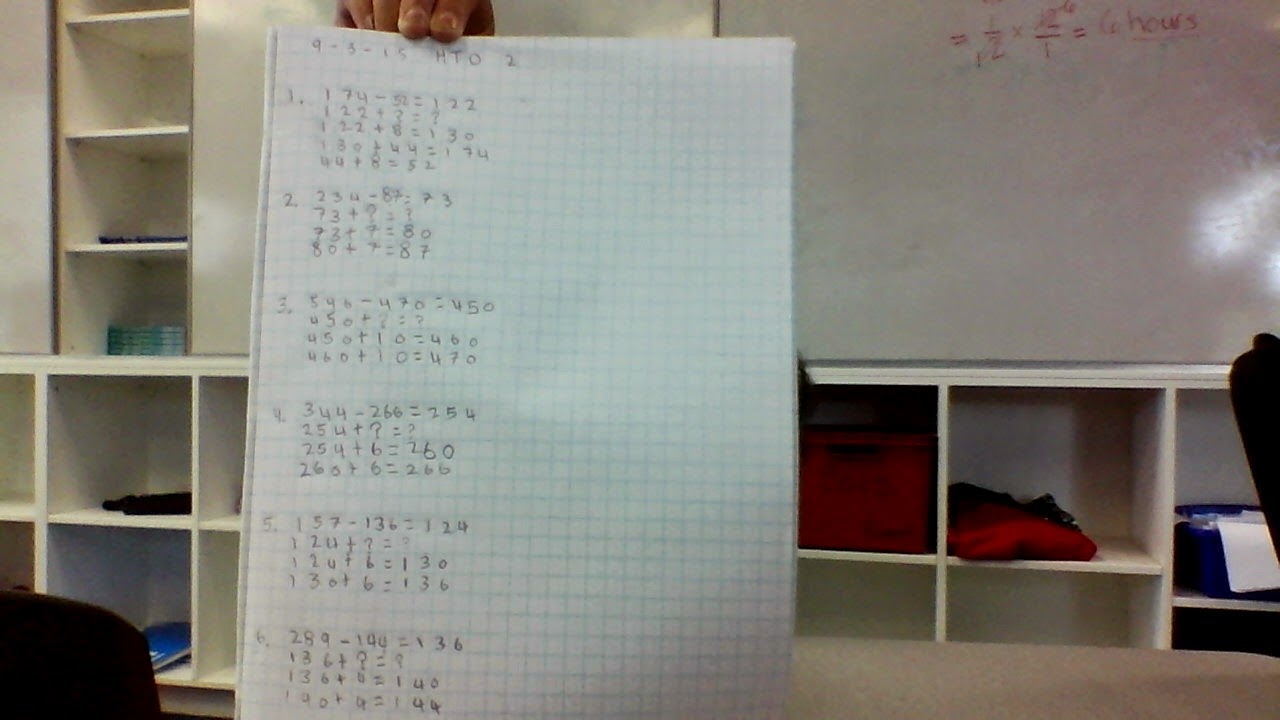 = 1/12 × 12 6/1 = 6 hours
9-3-15 HTO 2
1. 174-52=122
122+?=?
122+8=130
130+44=174
44+8=52
2. 234-87=73
73+?=?
73+7=80
80+7=87
3. 546-470=450
450+?=?
450+10=460
460+10=470
4. 344-266=254
254+?=?
254+6=260
260+6=266
5. 157-136=124
124+?=?
124+6=130
130+6=136
6. 289-144=136
136+?=?
136+4=140
140+4=144